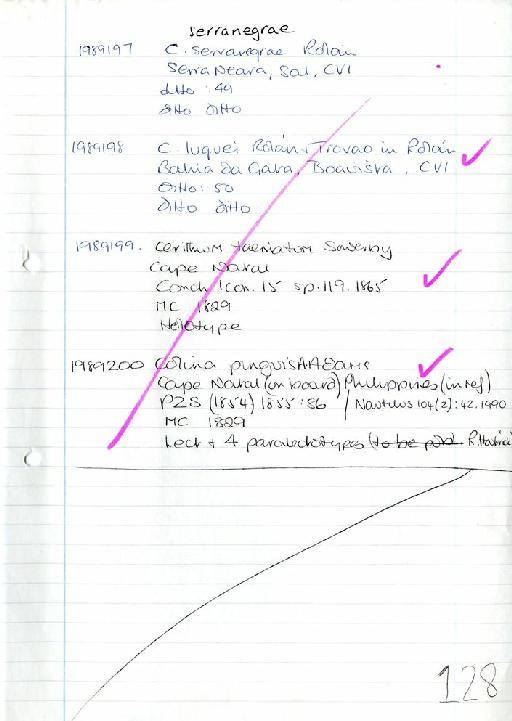 serranegrae
1989197 C. serranegrae Rolán
Serra Negra, Sal, CVI
ditto : 49
ditto ditto
1989198 C. luquei Rolán & Trovao in Rolán
Bahia da Gata, Boavista, CVI
Ditto: 50
ditto ditto
1989199. Cerithium taeniatum Sowerby
Cape Natal
Conch Icon. 15 sp. 119. 1865
MC 1829
Holotype
1989200 Colina pinguis A Adams
Cape Natal (on board) Philippines (in ref)
PZS (1854) 1855: 86 / Nautilus 104(2): 42. 1990
MC 1829
Lect + 4 paralectotypes (to be pbd R. Houbrick
128